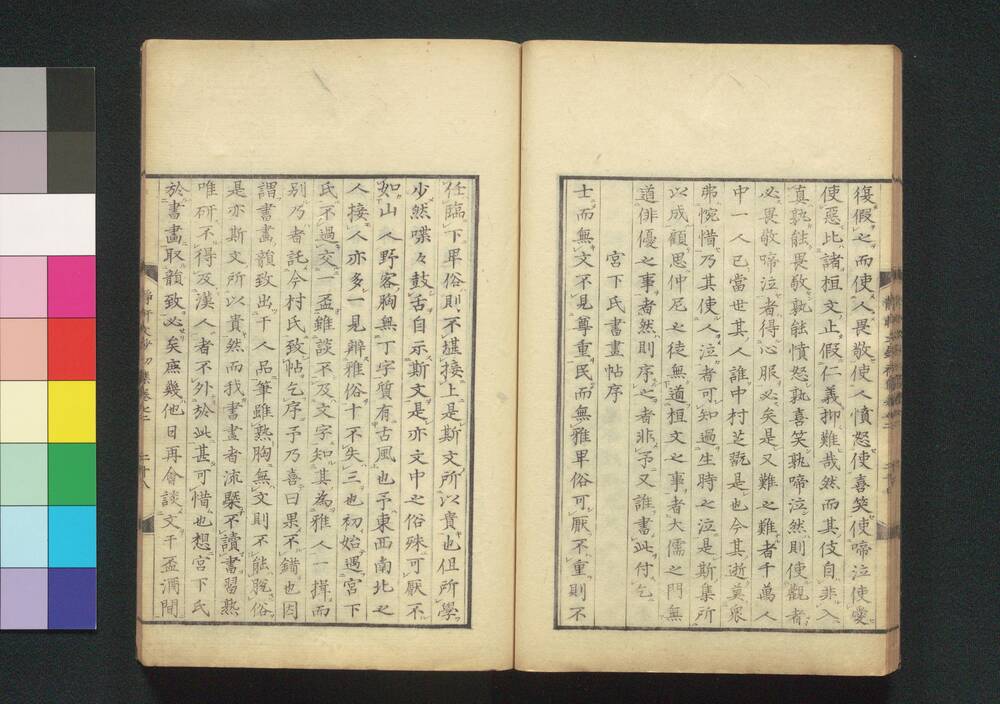 復假之而使人畏敬使人憤怒使喜笑使啼泣使愛
使惡比諸桓文止假仁義抑難哉然而其伎自非入
真孰能畏敬孰能憤怒孰喜笑孰啼泣然則使觀者
必畏敬啼泣者得心服必矣是又難之難者千萬人
中一人已當世其人誰中村芝翫是也今其逝莫衆
弗惋惜乃其使人泣者可知過生時之泣是斯集所
以成顧思仲尼之徒無道桓文之事者大儒之門無
道俳優之事者然則序之者非予又誰書此付乞
宮下氏書畫帖序
士而無文不見尊重民而無雅卑俗可厭不重則不
任臨下卑俗則不堪接上是斯文所以貴也但所學
少然喋々鼓舌自示斯文是亦文中之俗殊可厭不
如山人野客胸無丁字質有古風也予東西南北之
人接人亦多一見辨雅俗十不失三也初始遇宮下
氏不過交一盃雖談不及文字知其為雅人一揖而
別乃者託今村氏致帖乞序予乃喜曰果不錯也因
謂書畫韻致出于人品筆雖熟胸無文則不能脫俗
是亦斯文所以貴然而我書畫者流槩不讀書習熟
唯研不得及漢人者不外於此甚可惜也想宮下氏
於書畫取韻致必矣庶幾他日再會談文于盃酒間
靜軒文鈔初集卷之二
二十八